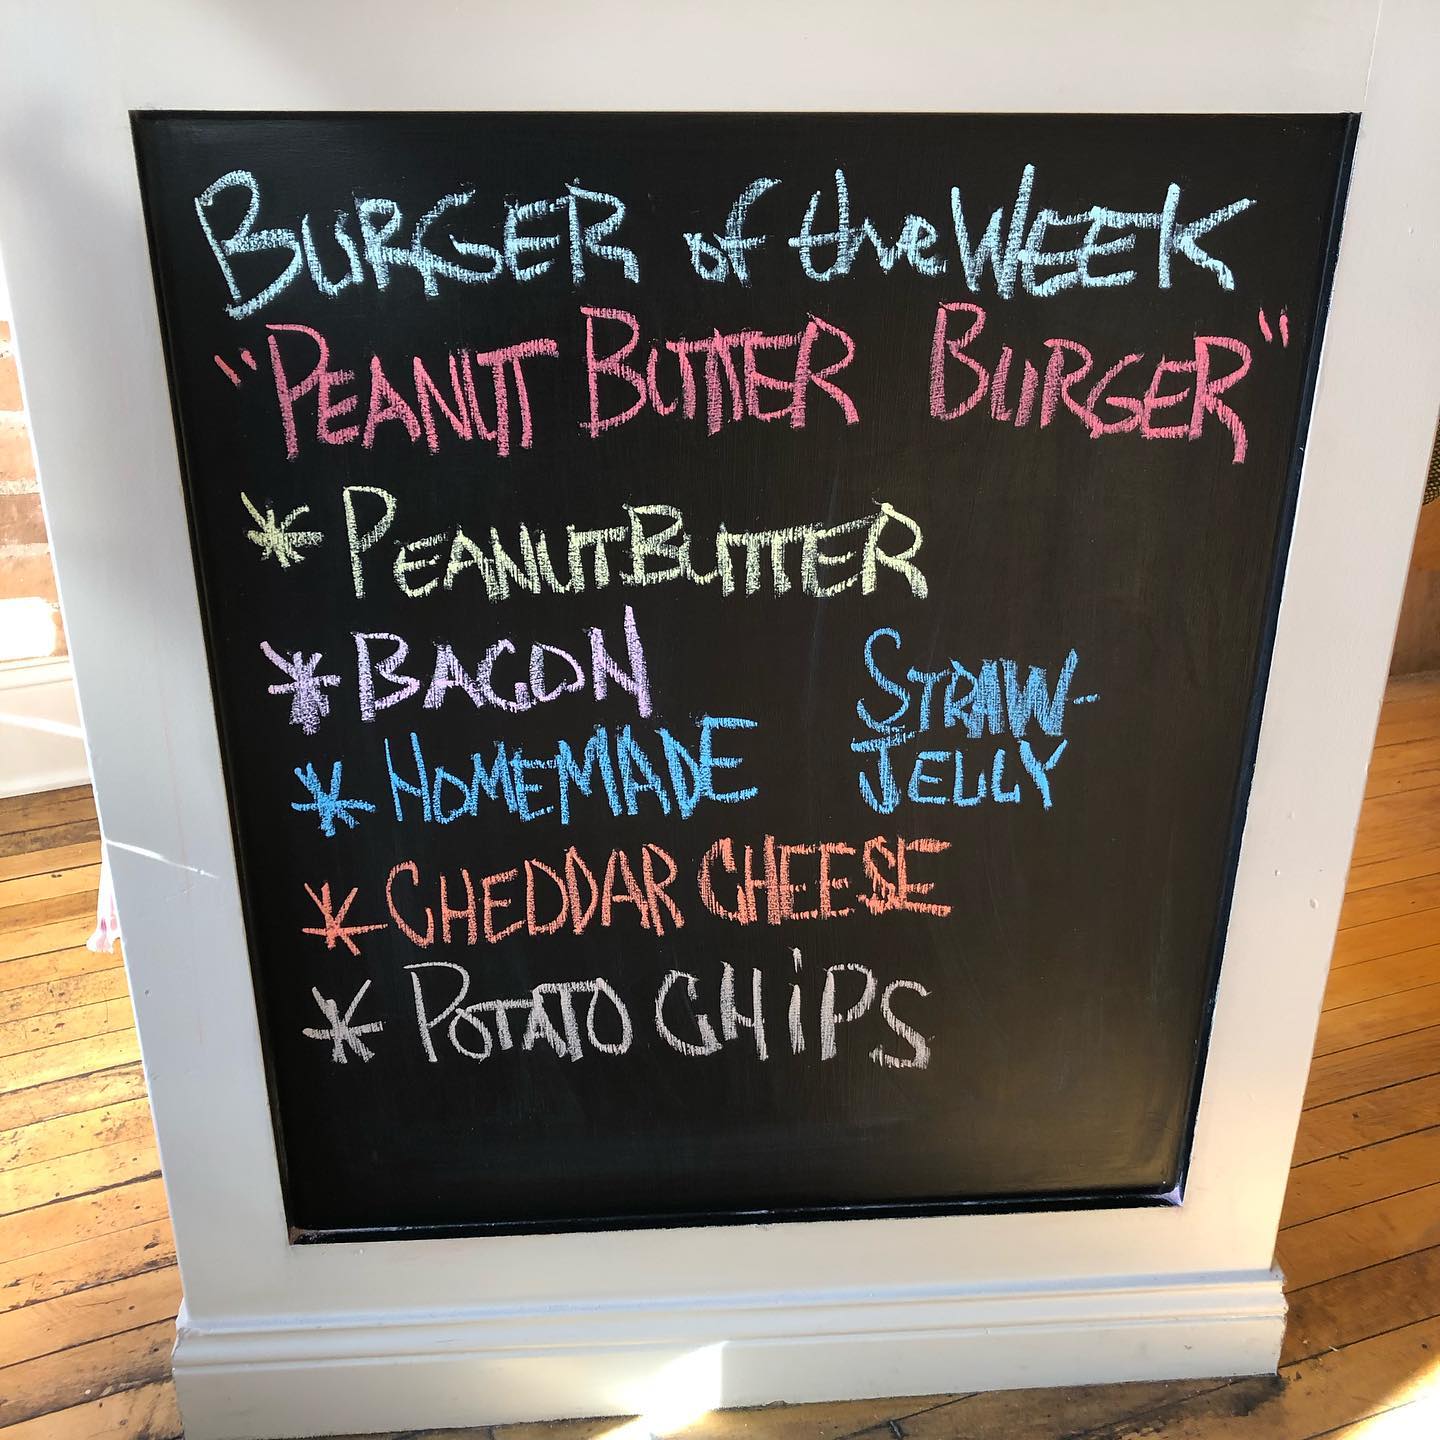 BURGER of the WEEK
"PEANUT BUTTER BURGER"
* PEANUT BUTTER
* BACON
* HOMEMADE STRAW-
JELLY
* CHEDDAR CHEESE
* POTATO CHiPS